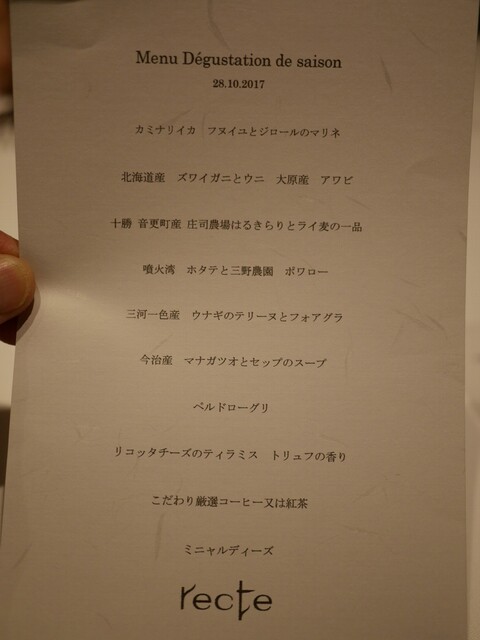 Menu Dégustation de saison
28.10.2017
カミナリイカ　フヌイユとジロールのマリネ
北海道産　ズワイガニとウニ　大原産　アワビ
十勝 音更町産 庄司農場はるきらりとライ麦の一品
噴火湾　ホタテと三野農園　ポワロー
三河一色産　ウナギのテリーヌとフォアグラ
今治産　マナガツオとセップのスープ
ペルドローグリ
リコッタチーズのティラミス　トリュフの香り
こだわり厳選コーヒー又は紅茶
ミニャルディーズ
recte